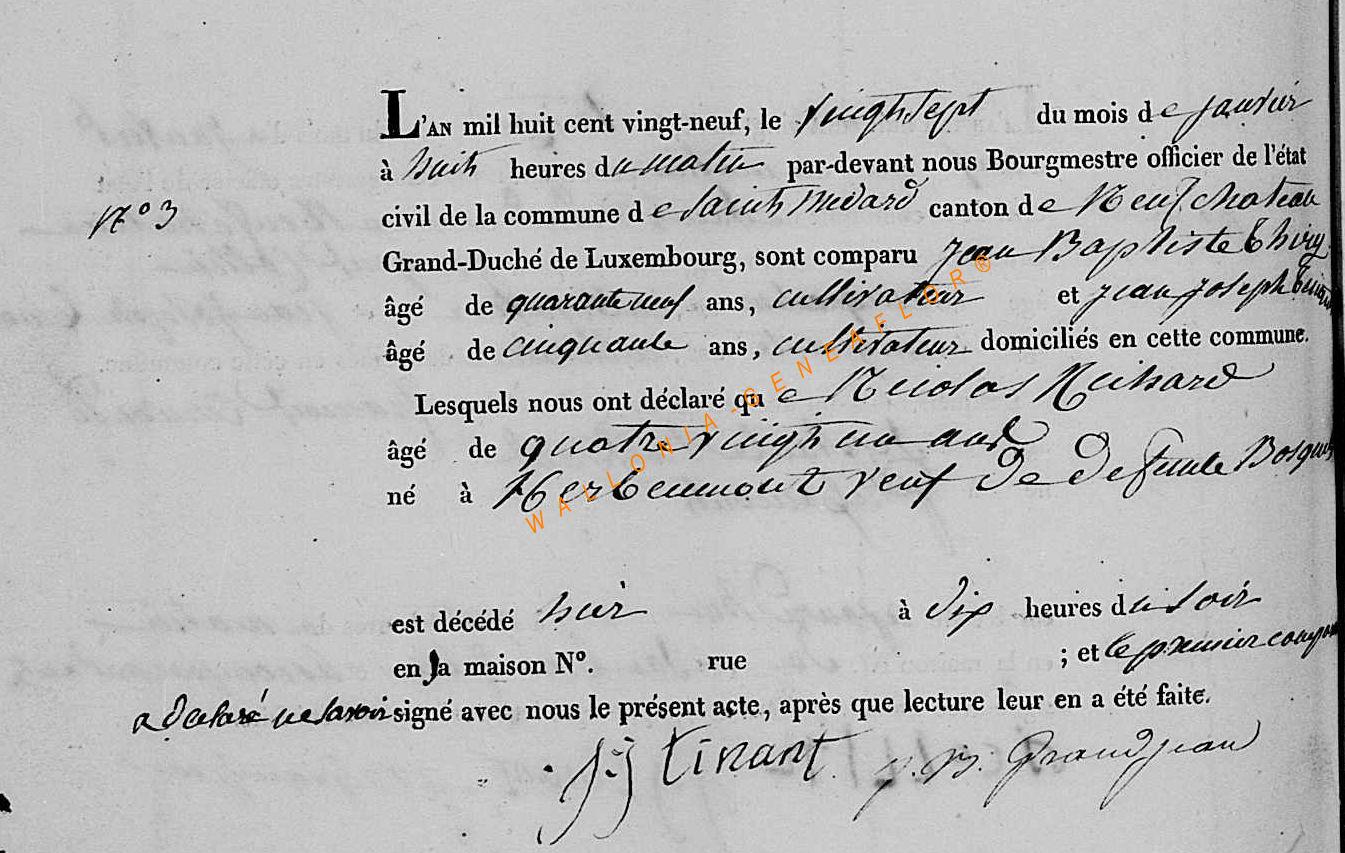 L'AN mil huit cent vingt-neuf, le vingt sept du mois de janvier
à huit heures du matin par-devant nous Bourgmestre officier de l'état
N° 3
civil de la commune de Saint Médard canton de Neufchateau
Grand-Duché de Luxembourg, sont comparu Jean Baptiste Thiry
âgé de quarante neuf ans, cultivateur et Jean Joseph
âgé de cinquante ans, cultivateur domiciliés en cette commune.
Lesquels nous ont déclaré que Nicolas Richard
âgé de quatre vingt un ans
né à Herbeumont veuf de defunte
est décédé hier à dix heures du soir
en sa maison N°. rue ; et le premier
a declaré ne savoir signé avec nous le présent acte, après que lecture leur en a été faite.
JJ Tinant J. B. Grandjean
WALLONIA-GENEAFLOR®